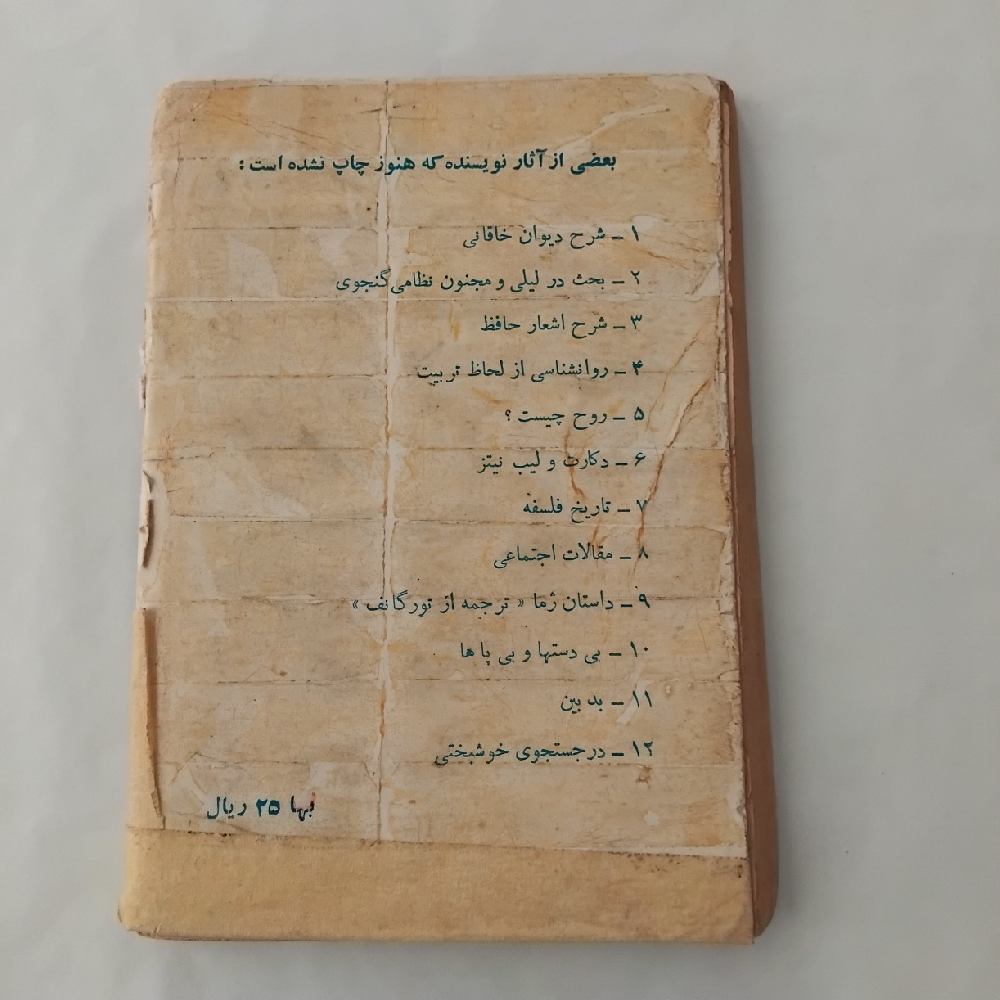 بعضی از آثار نویسنده که هنوز چاپ نشده است :
۱ ـ شرح دیوان خاقانی
۲ ـ بحث در لیلی و مجنون نظامی گنجوی
۳ ـ شرح اشعار حافظ
۴ ـ روانشناسی از لحاظ تربیت
۵ ـ روح چیست ؟
۶ ـ دکارت و لیب نیتز
۷ ـ تاریخ فلسفه
۸ ـ مقالات اجتماعی
۹ ـ داستان ژما « ترجمه از تورگانف »
۱۰ ـ بی دستها و بی پاها
۱۱ ـ بد بین
۱۲ ـ در جستجوی خوشبختی
بها ۲۵ ریال